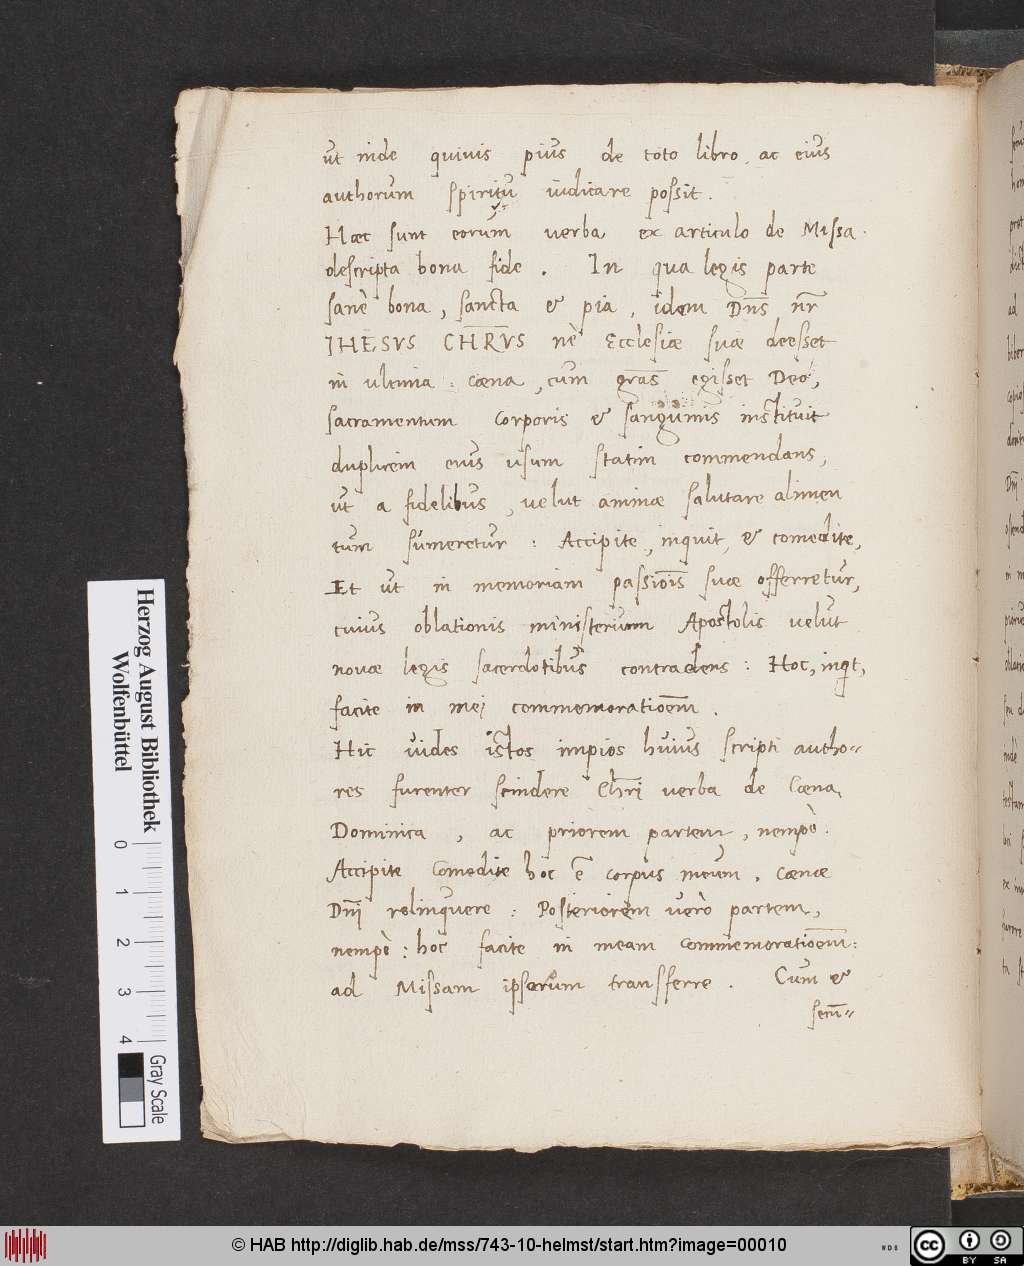 ut inde quiuis pius de toto libro, ac eius
authorum spiritu iudicare possit.
Haec sunt eorum verba ex articulo de Missa.
descripta bona fide. In qua legis parte
sanè bona, sancta & pia, idem Dñs nr̄
IHESVS CHR̄VS nè Ecclesiæ suæ deesset
in ultima cœna, cum grãs egisset Deo,
sacramentum corporis & sanguinis instituit
duplicem eius usum statim commendans,
ut a fidelibus, velut animæ salutare alimen
tum sumeretur: Accipite, inquit, & comedite,
Et ut in memoriam passiõis suæ offerretur,
cuius oblationis ministerium Apostolis velut
novæ legis sacerdotibus contradens: Hoc, inqt,
facite in mei commemoratiõem.
Hic vides istos impios huius scripti autho=
res furenter scindere Chr̄i verba de Cœna
Dominica, ac priorem partem, nempè.
Accipite Comedite hoc ē corpus meum. Cœnæ
Dñi relinquere: Posteriorem verò partem,
nempè: hoc facite in meam Commemoratiõem:
ad Missam ipsorum transferre. Cum &
secũ=
Herzog August Bibliothek
Wolfenbüttel
0 1 2 3 4
Gray Scale
© HAB http://diglib.hab.de/mss/743-10-helmst/start.htm?image=00010
cc BY SA